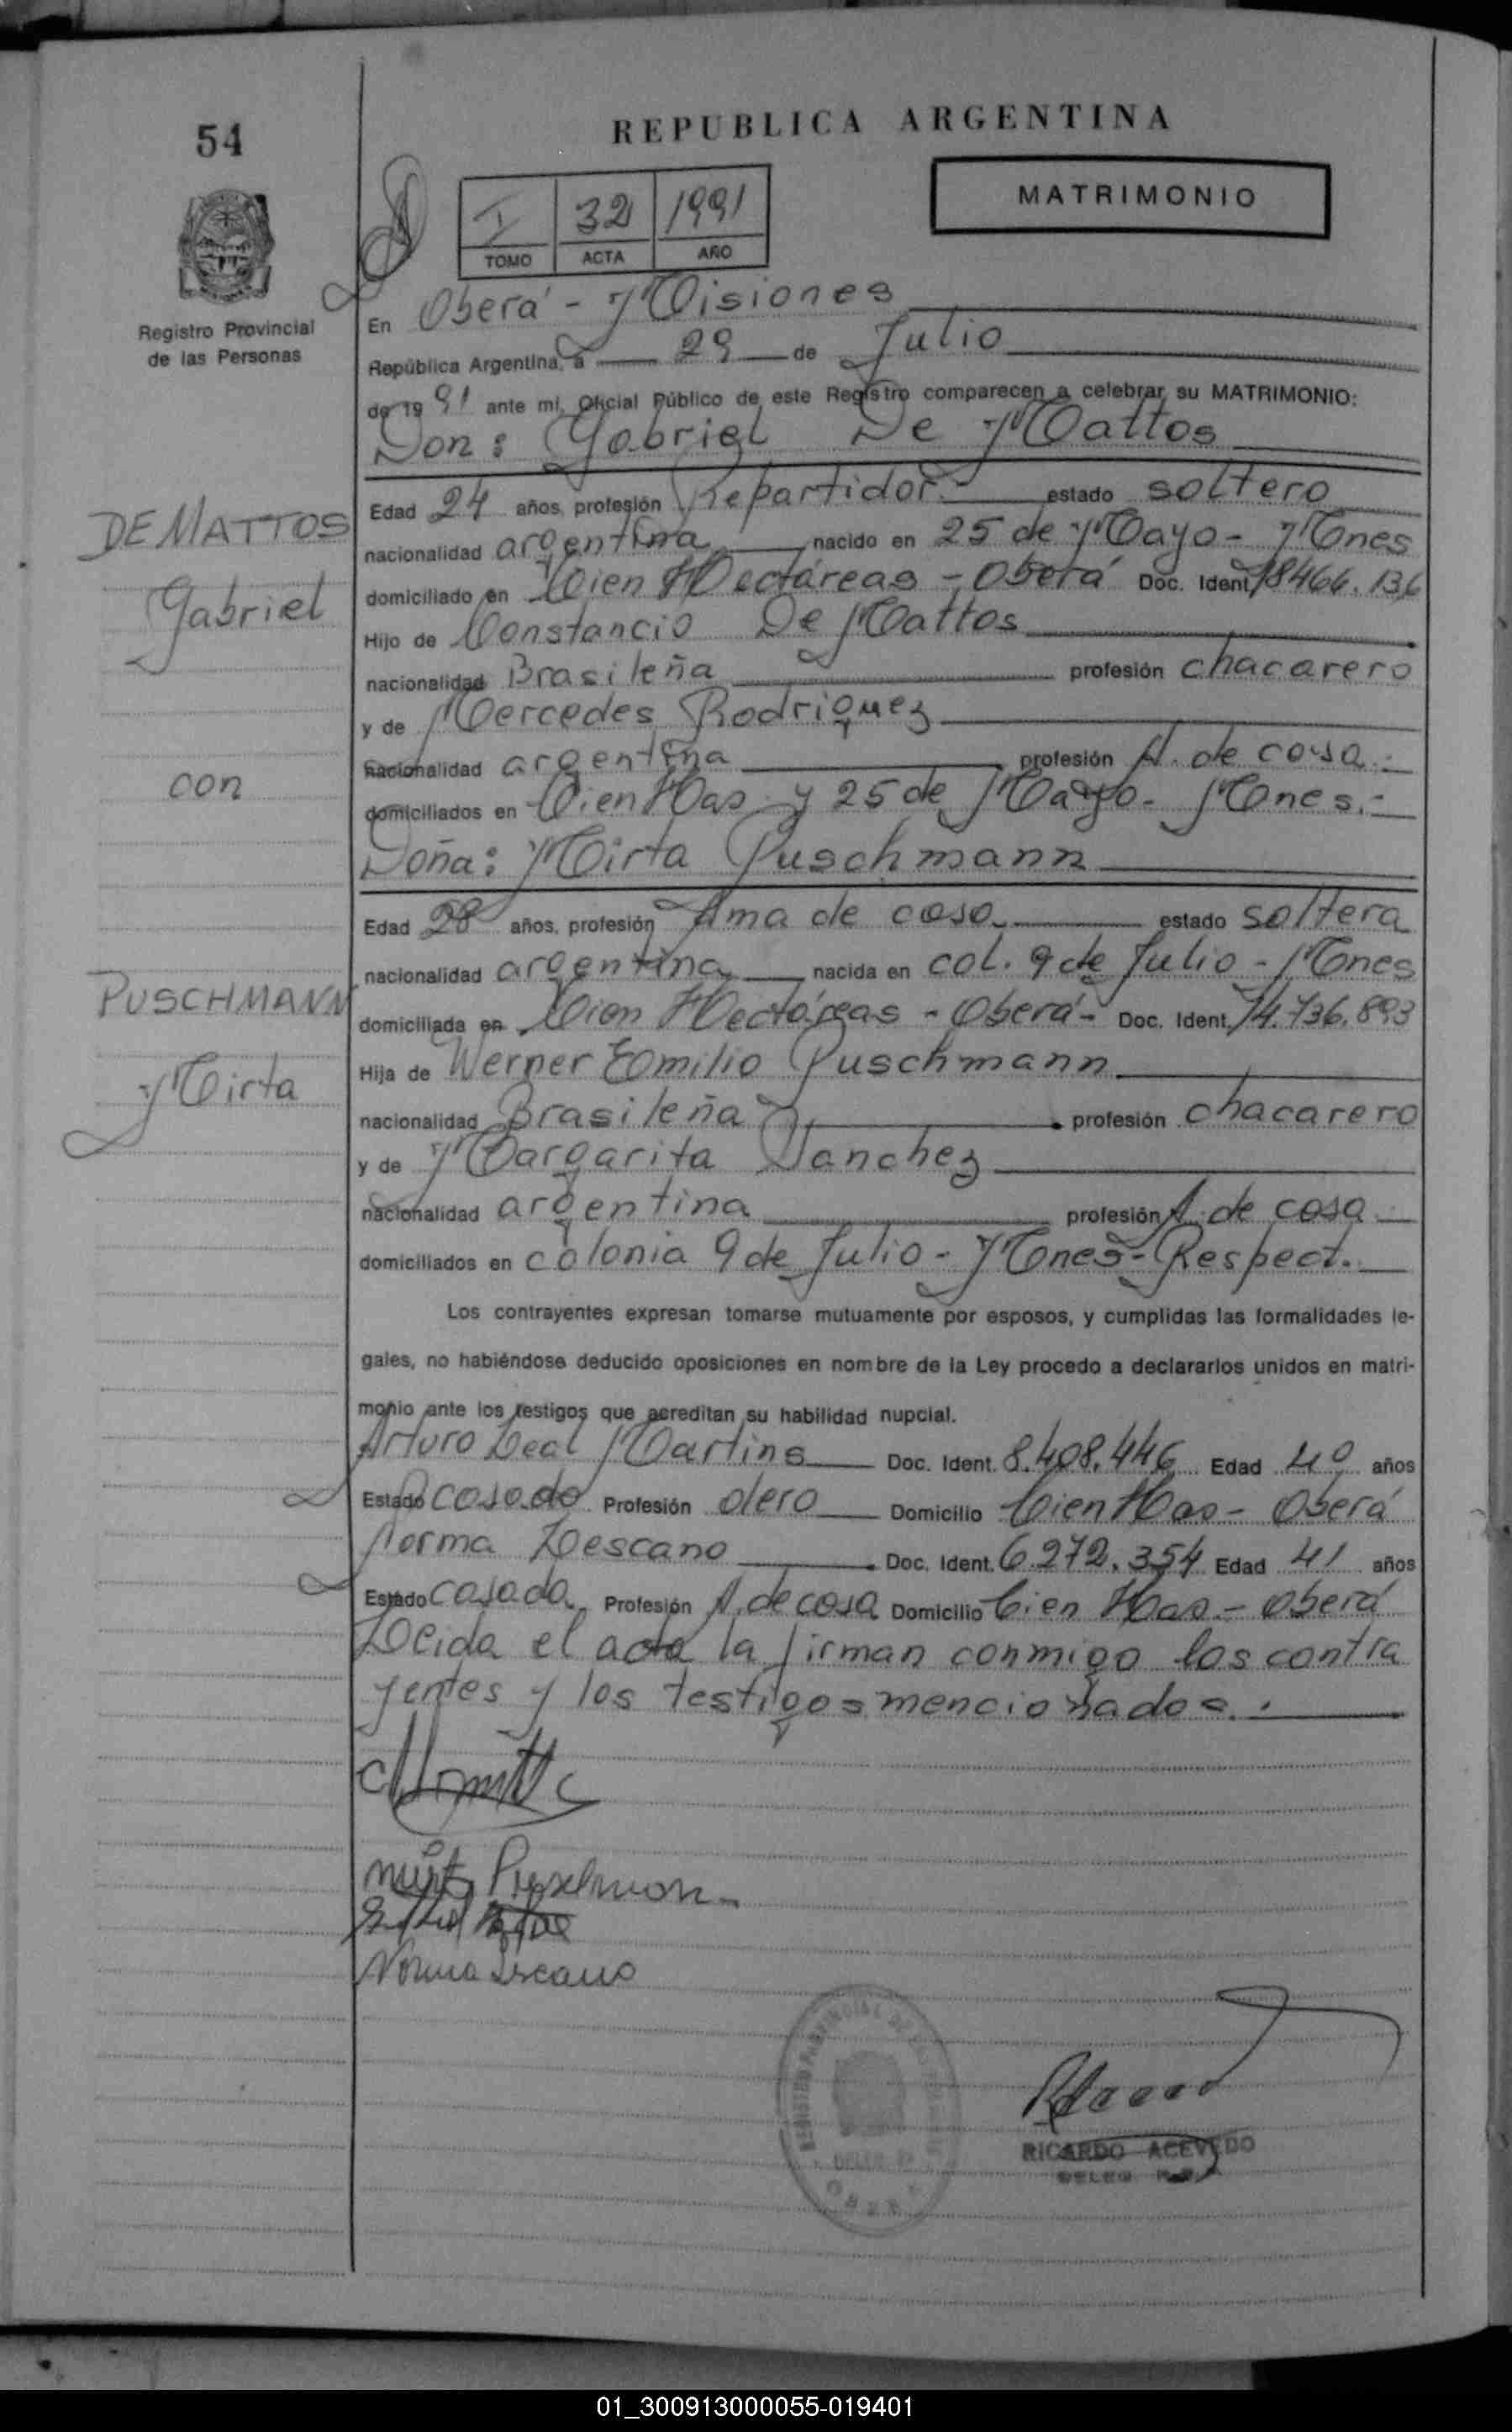 54
REPUBLICA ARGENTINA
MATRIMONIO
I 32 1991
TOMO ACTA AÑO
Registro Provincial
de las Personas
En Oberá - Misiones
República Argentina, a 29 de Julio
de 19 91 ante mi, Oficial Público de este Registro comparecen a celebrar su MATRIMONIO:
Don: Gabriel De Mattos
Edad 24 años, profesión Repartidor estado soltero
DE MATTOS
nacionalidad argentina nacido en 25 de Mayo - Mnes
domiciliado en Cien Hectáreas - Oberá Doc. Ident. 18466.136
Gabriel
Hijo de Constancio De Mattos
nacionalidad Brasileña profesión chacarero
y de Mercedes Rodriguez
nacionalidad argentina profesión A. de casa.-
con
domiciliados en Cien Has y 25 de Mayo - Mnes.-
Doña: Mirta Puschmann
Edad 28 años, profesión Ama de casa estado soltera
nacionalidad argentina nacida en col. 9 de Julio - Mnes
PUSCHMANN
domiciliada en Cien Hectáreas - Oberá - Doc. Ident. 14.736.893
Hija de Werner Emilio Puschmann
Mirta
nacionalidad Brasileña profesión chacarero
y de Margarita Sanchez
nacionalidad argentina profesión A. de casa
domiciliados en colonia 9 de Julio - Mnes - Respect.
Los contrayentes expresan tomarse mutuamente por esposos, y cumplidas las formalidades le-
gales, no habiéndose deducido oposiciones en nombre de la Ley procedo a declararlos unidos en matri-
monio ante los testigos que acreditan su habilidad nupcial.
Arturo Leal Martins Doc. Ident. 8.408.446 Edad 40 años
Estado casado Profesión olero Domicilio Cien Has - Oberá
Norma Lescano Doc. Ident. 6.272.354 Edad 41 años
Estado casada Profesión A. de casa Domicilio Cien Has - Oberá
Leida el acta la firman conmigo los contra
yentes y los testigos mencionados.
Norma Lescano
REGISTRO PROVINCIAL DE LAS PERSONAS
OBERA
RICARDO ACEVEDO
01_300913000055-019401